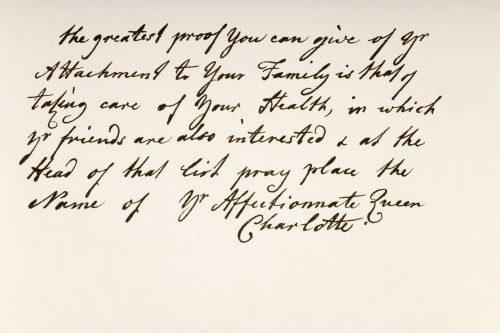 the greatest proof You can give of Yr
Attachment to Your Family is that of
taking care of Your Health, in which
yr friends are also interested & at the
Head of that list pray place the
Name of Yr Affectionnate Queen
Charlotte.